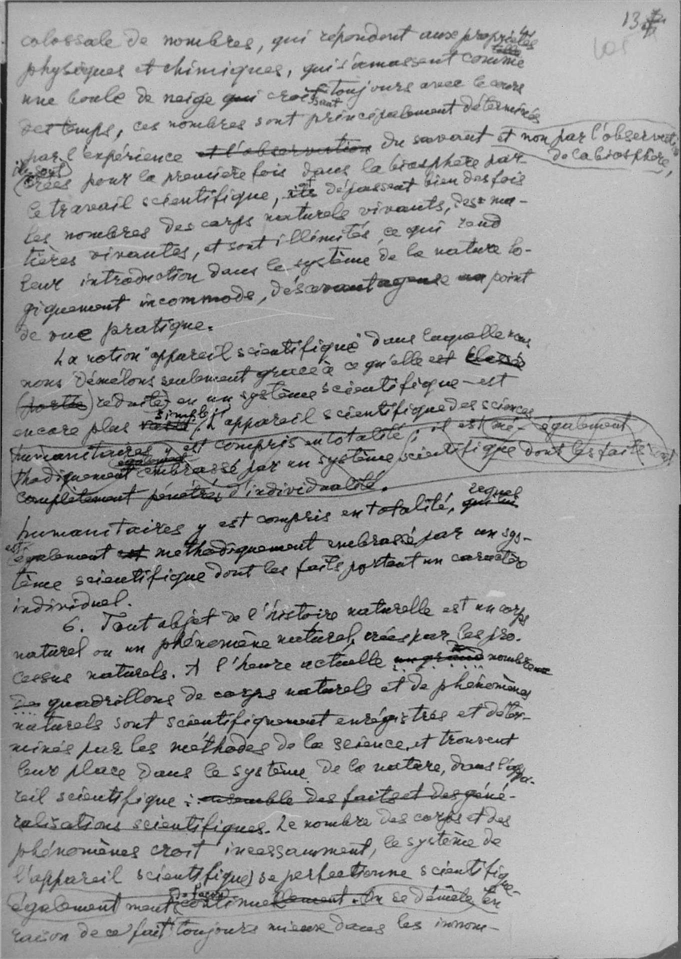 13
105
colossale de nombres, qui répondent aux propriétés
physiques et chimiques, qui s'amassent comme
une boule de neige qui croissant toujours avec le cours
des temps, ces nombres sont principalement déterminés
par l'expérience et l'observation du savant et non par l'observation
de la biosphère,
créés pour la première fois dans la biosphère par
le travail scientifique, dépassent bien des fois
les nombres des corps naturels vivants, des ma-
tières vivantes, et sont illimités, ce qui rend
leur introduction dans le système de la nature lo-
giquement incommode, désavantageuse au point
de vue pratique.
La notion "appareil scientifique" dans laquelle nous
nous démêlons seulement grâce à ce qu'elle est
(réduite) en un système scientifique – est
encore plus simple; L'appareil scientifique des sciences
humanitaires y est compris en totalité; il est mé- également
thodiquement embrassé par un système scientifique dont les faits sont
complètement pénétrés d'individualité.
humanitaires y est compris en totalité,
est également et méthodiquement embrassé par un sys-
tème scientifique dont les faits portent un caractère
individuel.
6. Tout objet de l'histoire naturelle est un corps
naturel ou un phénomène naturel, créés par les pro-
cessus naturels. A l'heure actuelle un grand nombre
quadrillons de corps naturels et de phénomènes
naturels sont scientifiquement enrégistrés et déter-
minés par les méthodes de la science, et trouvent
leur place dans le système de la nature, dans l'appa-
reil scientifique: ensemble des faits et des géné-
ralisations scientifiques. Le nombre des corps et des
phénomènes croit incessamment, le système de
l'appareil scientifique) se perfectionne scientifique-
également ment continuellement. On se démêle en
raison de ce fait toujours mieux dans les innom-